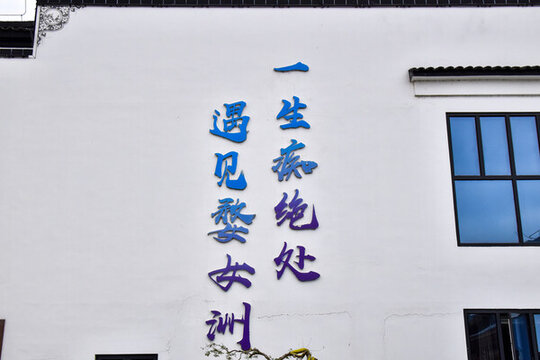 一生痴绝处
遇见婺女洲